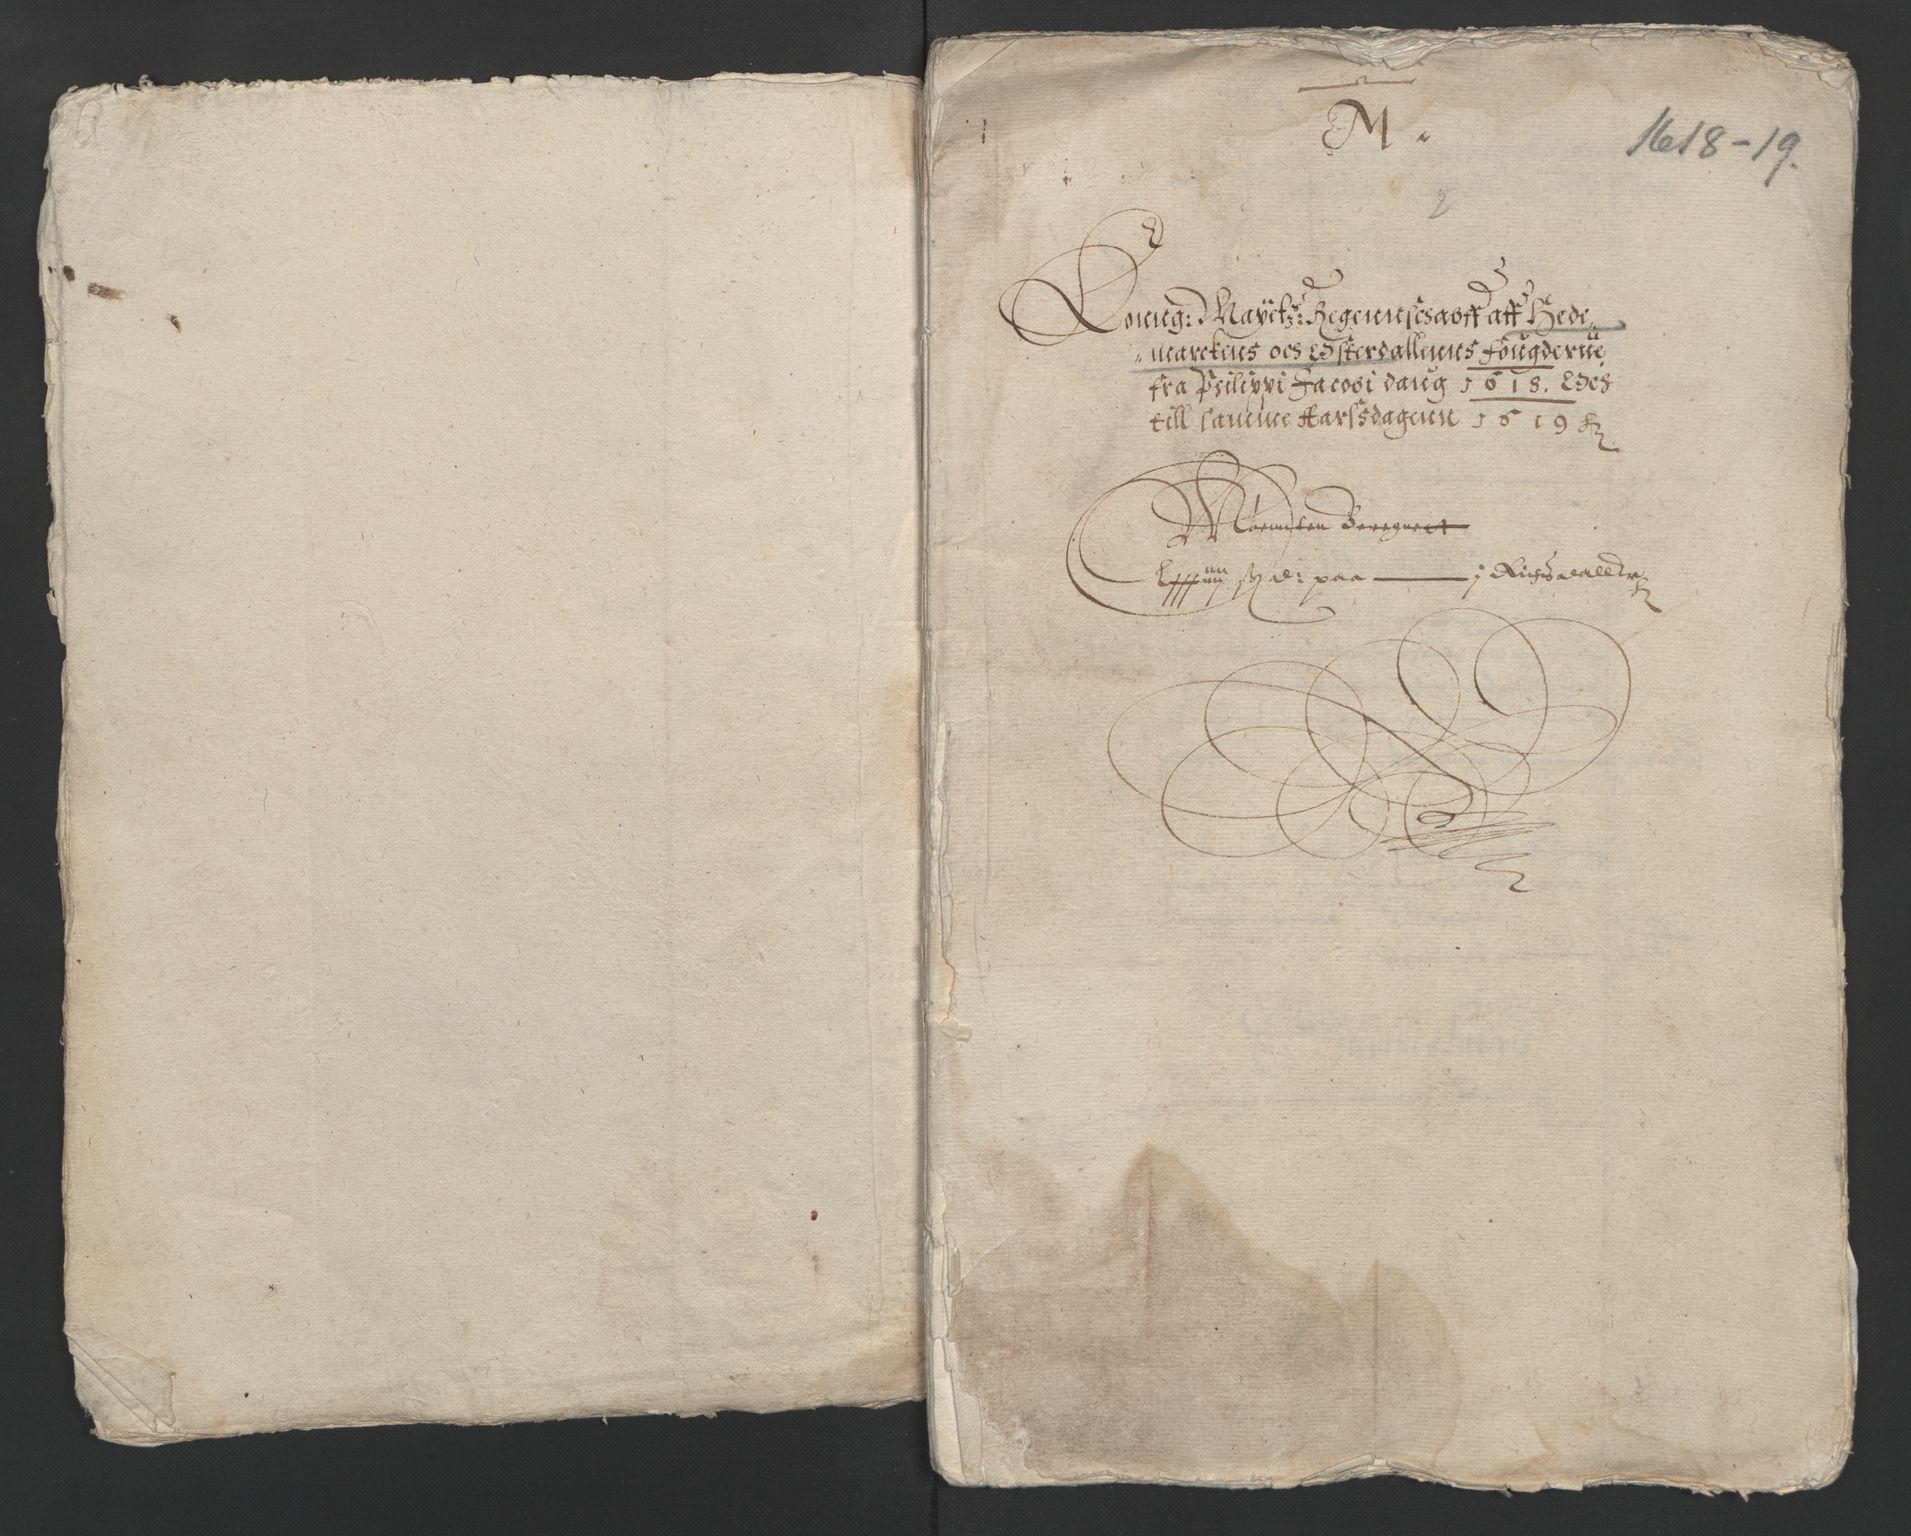 M
1618-19.
2
Konng: Mayttz: Regennschaff aff Hede
marckens och Østerdallenns fougderrie
fra Philippi Jacobi daug 1618. Och
till samme Aarssdagenn 1619
Møennten Beregnett
paa j Richsdaller